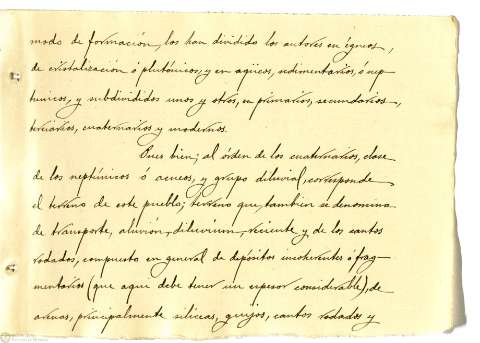 modo de formación, los han dividido los autores en ígneos,
de cristalización ó plutónicos, y en aqüeos, sedimentarios, ó nep-
tunicos, y subdivididos unos y otros, en primarios, secundarios,
terciarios, cuaternarios y modernos.
Pues bien; al órden de los cuaternarios, clase
de los neptúnicos ó acueos, y grupo diluvial, corresponde
el terreno de este pueblo; terreno que, tambien se denomina
de transporte, aluvión, diluvium, reciente y de los cantos
rodados, compuesto en general de depósitos incoherentes ó frag-
mentarios (que aqui debe tener un espesor considerable), de
arenas, principalmente siliceas, guijos, cantos rodados y